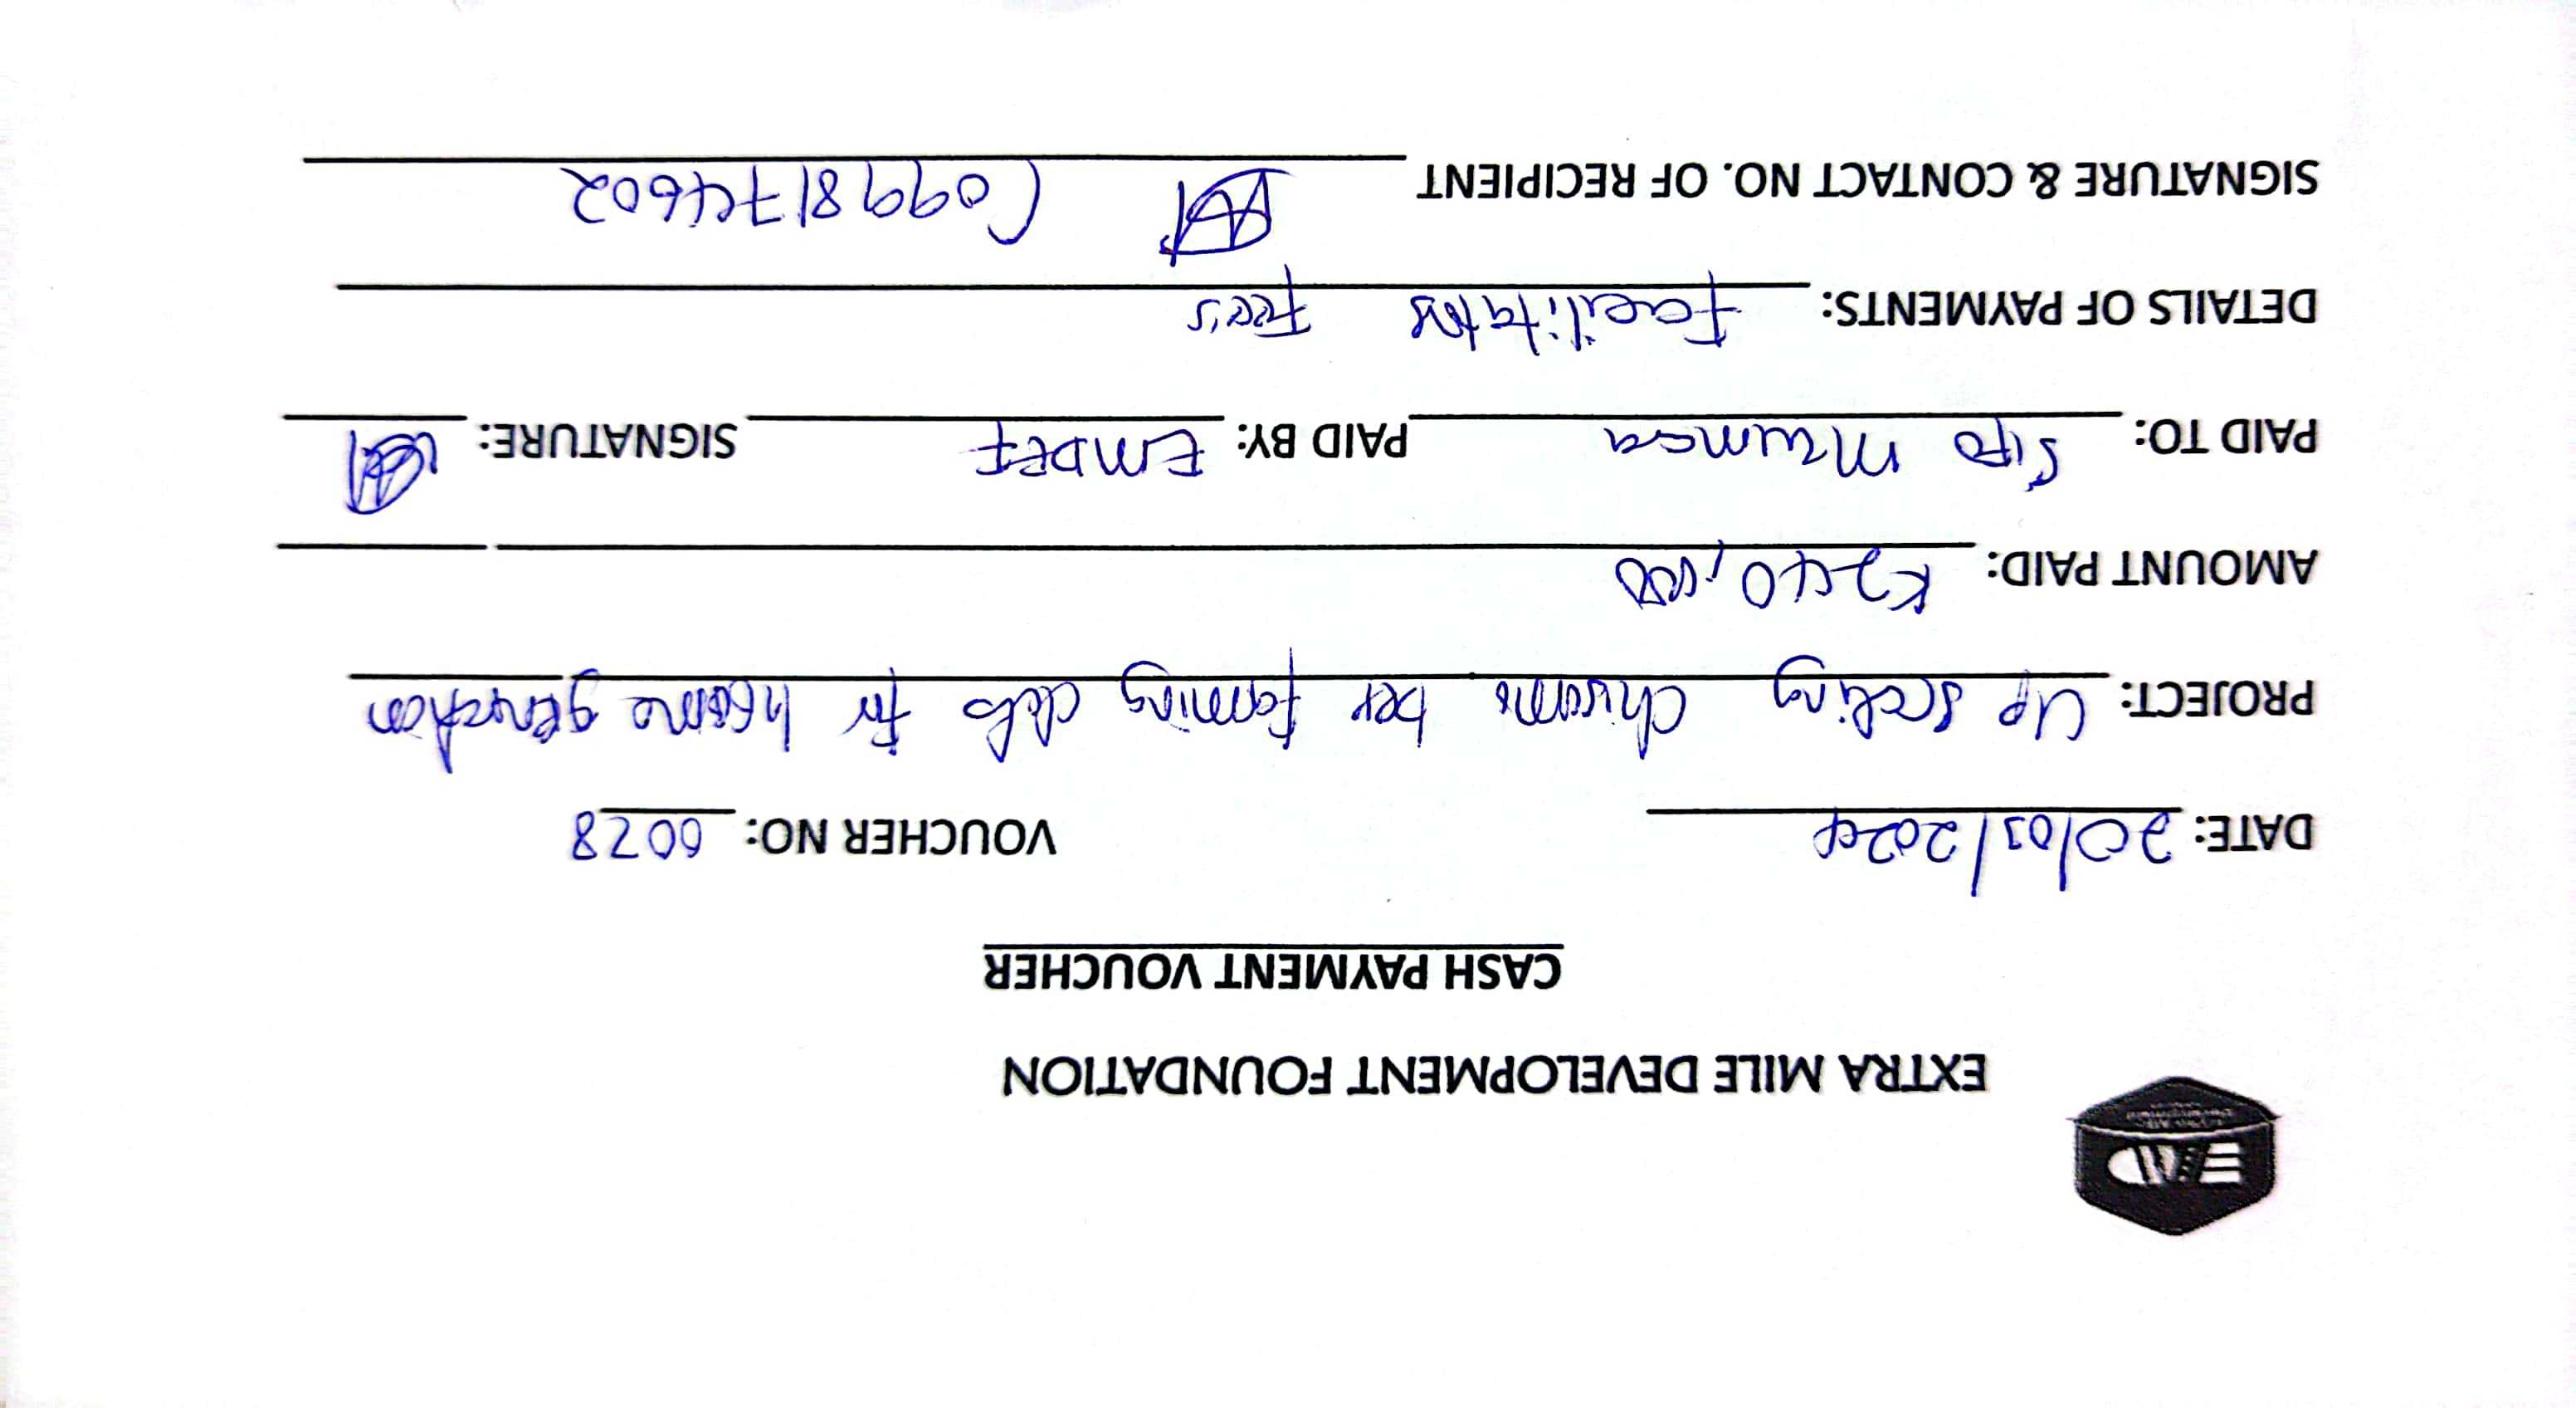 EMD
EXTRA MILE DEVELOPMENT FOUNDATION
CASH PAYMENT VOUCHER
DATE: 20/03/2024 VOUCHER NO: 0028
PROJECT: Up scaling Chisomo bee farming clubs for income generation
AMOUNT PAID: K240,000
PAID TO: Sipo Mzumara PAID BY: EMDEF SIGNATURE:
DETAILS OF PAYMENTS: Facilitators Fee's
SIGNATURE & CONTACT NO. OF RECIPIENT (0998174602